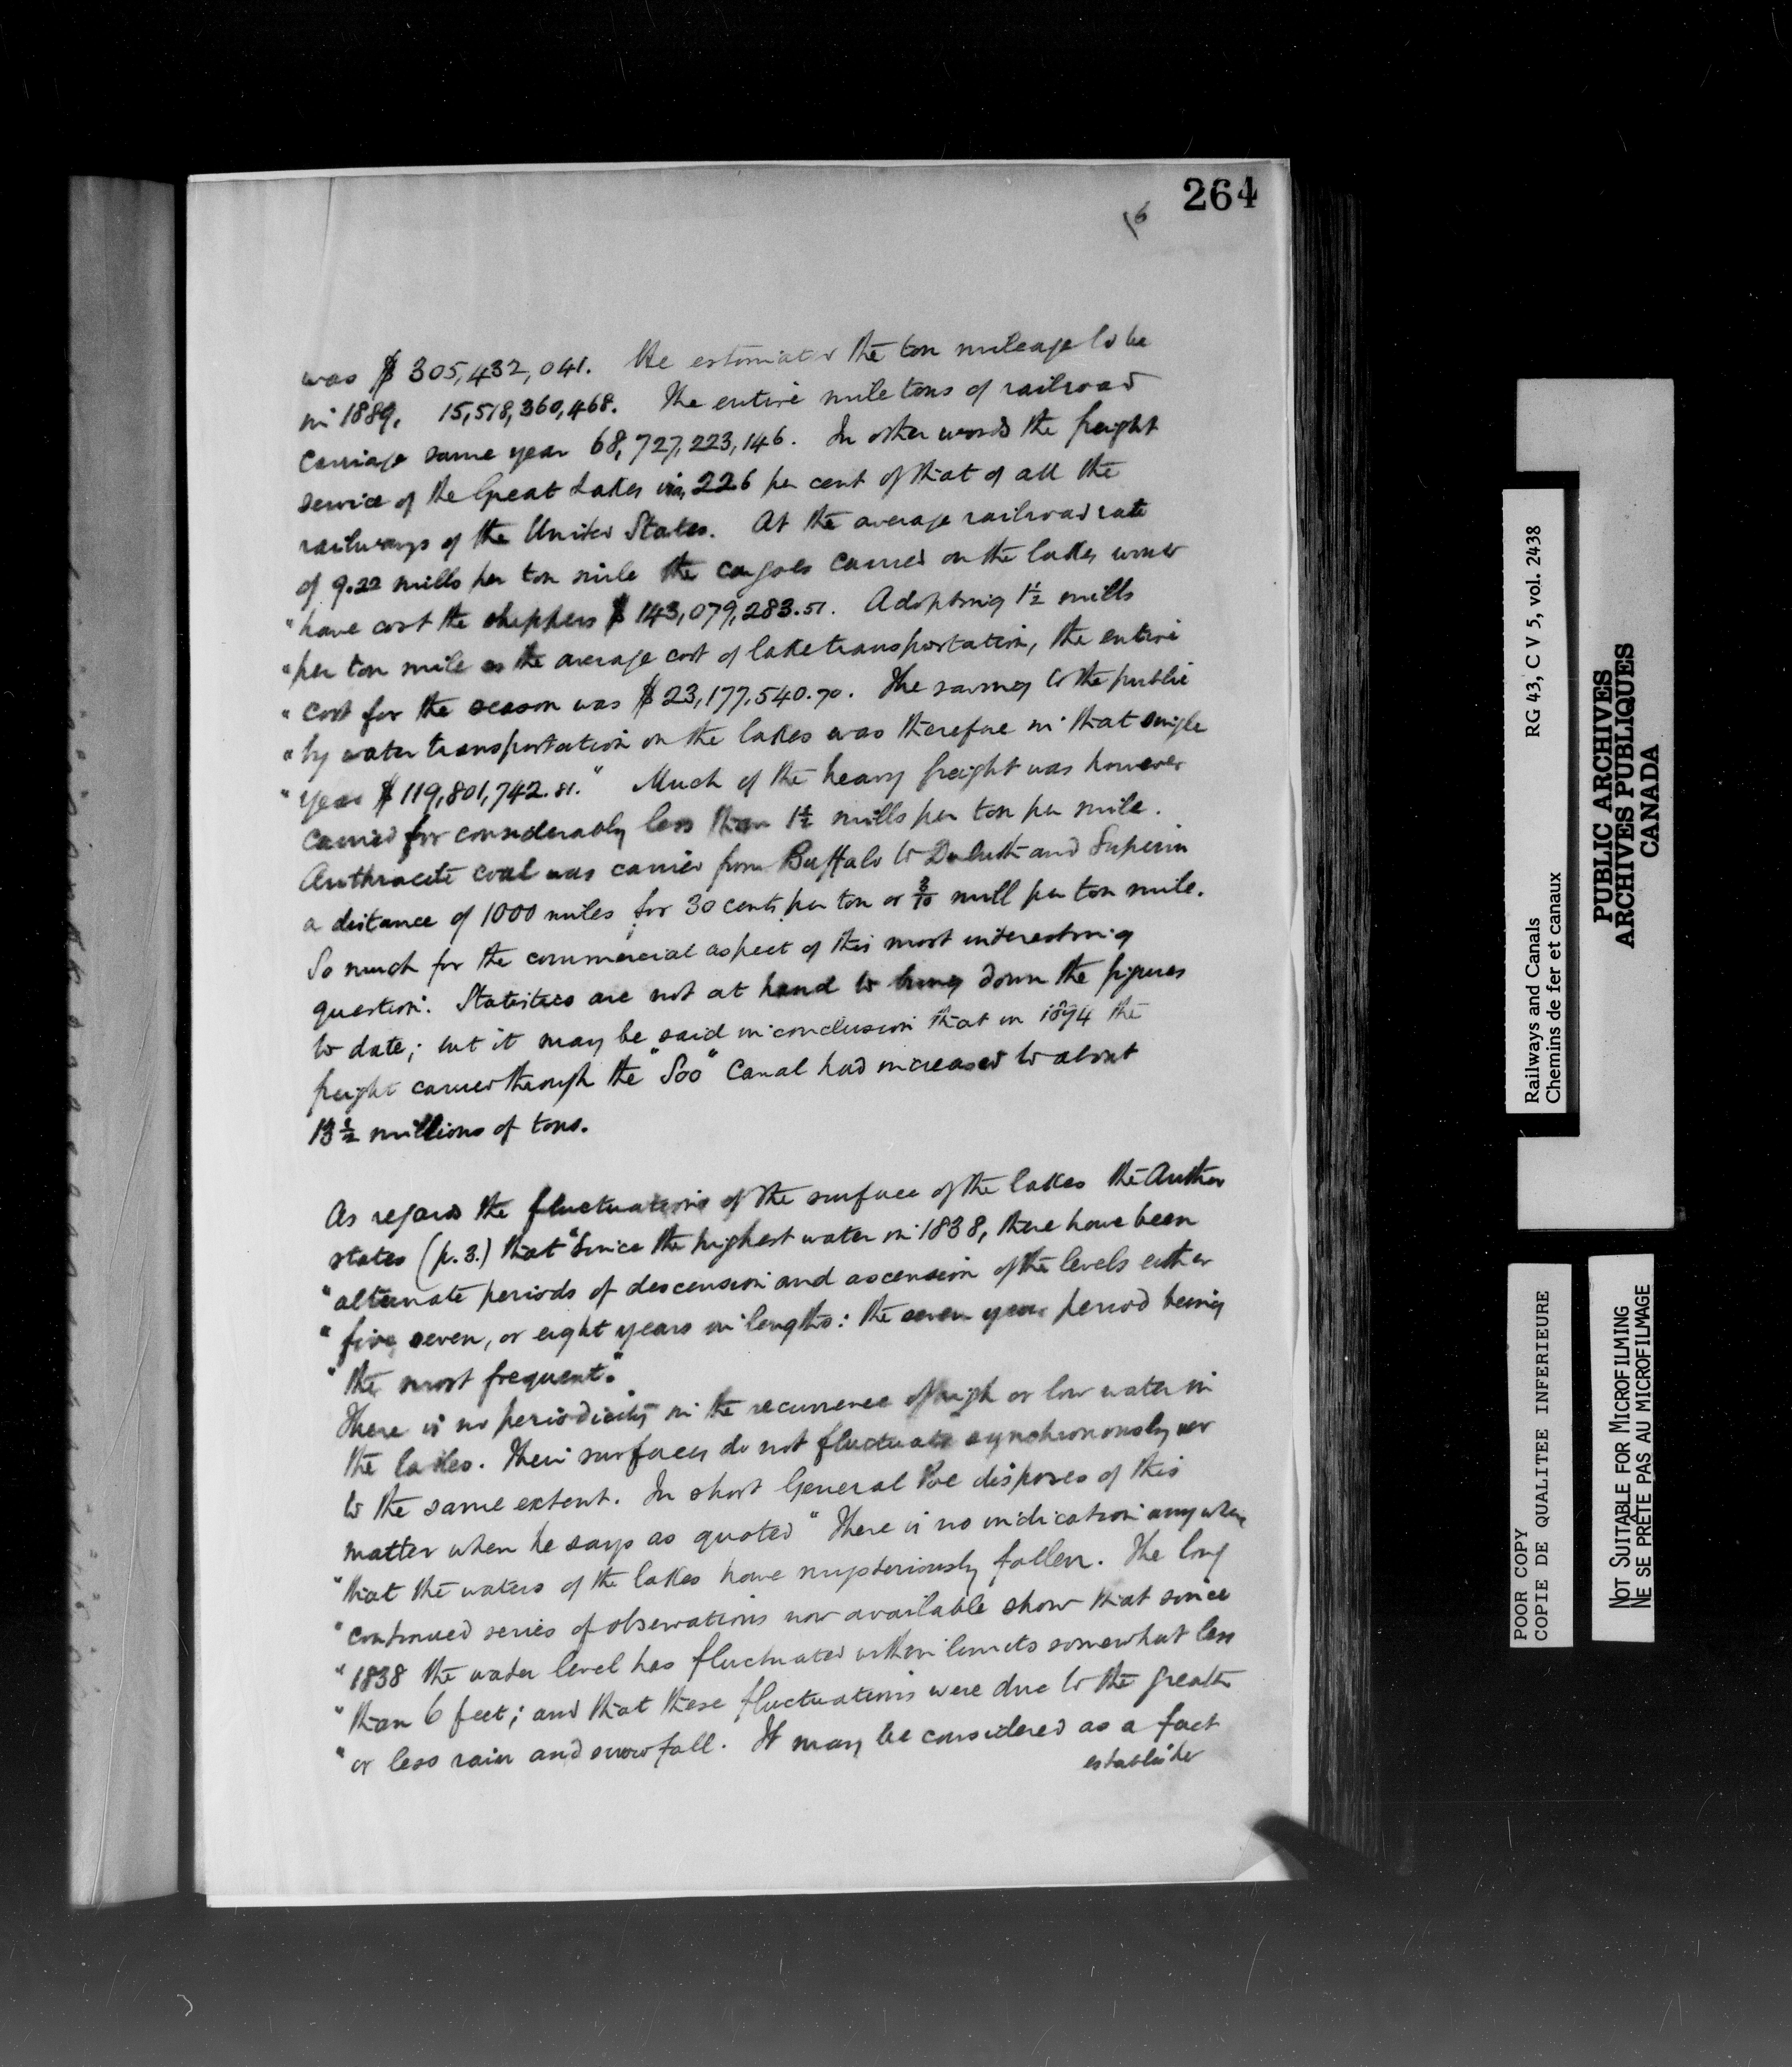 264
16
was $305,432,041. He estimates the ton mileage to be
in 1889, 15,518,360,468. The entire mile tons of railroad
Carriage same year 68,727,223,146. In other words the freight
service of the Great Lakes is 22.6 per cent of that of all the
railways of the United States. At the average railroad rate
of 9.22 mills per ton mile the cargoes carried on the lakes would
"have cost the shippers $143,079,283.51. Adopting 1½ mills
"per ton mile as the average cost of lake transportation, the entire
"cost for the season was $23,177,540.70. The saving to the public
"by water transportation on the lakes was therefore in that single
"year $119,801,742.81." Much of the heavy freight was however
carried for considerably less than 1½ mills per ton per mile.
Anthracite coal was carried from Buffalo to Duluth and Superior
a distance of 1000 miles for 30 cents per ton or 3/10 mill per ton mile.
So much for the commercial aspect of this most interesting
question. Statistics are not at hand to bring down the figures
to date; but it may be said in conclusion that in 1894 the
freight carried through the "Soo" Canal had increased to about
13½ millions of tons.
As regards the fluctuations of the surface of the lakes the Author
states (p.3.) that "Since the highest water in 1838, there have been
"alternate periods of descension and ascension of the levels either
"five, seven, or eight years in lengths: the seven year period being
"the most frequent."
There is no "periodicity" in the recurrence of high or low water in
the lakes. Their surfaces do not fluctuate synchronously nor
to the same extent. In short General Poe disposes of this
matter when he says as quoted "There is no indication anywhere
"that the waters of the lakes have mysteriously fallen. The long
"continued series of observations now available show that since
"1838 the water level has fluctuated within limits somewhat less
"than 6 feet; and that these fluctuations were due to the greater
"or less rain and snowfall. It may be considered as a fact
established
Railways and Canals RG 43, C V 5, vol. 2438
Chemins de fer et canaux
PUBLIC ARCHIVES
ARCHIVES PUBLIQUES
CANADA
POOR COPY
COPIE DE QUALITEE INFERIEURE
NOT SUITABLE FOR MICROFILMING
NE SE PRÊTE PAS AU MICROFILMAGE